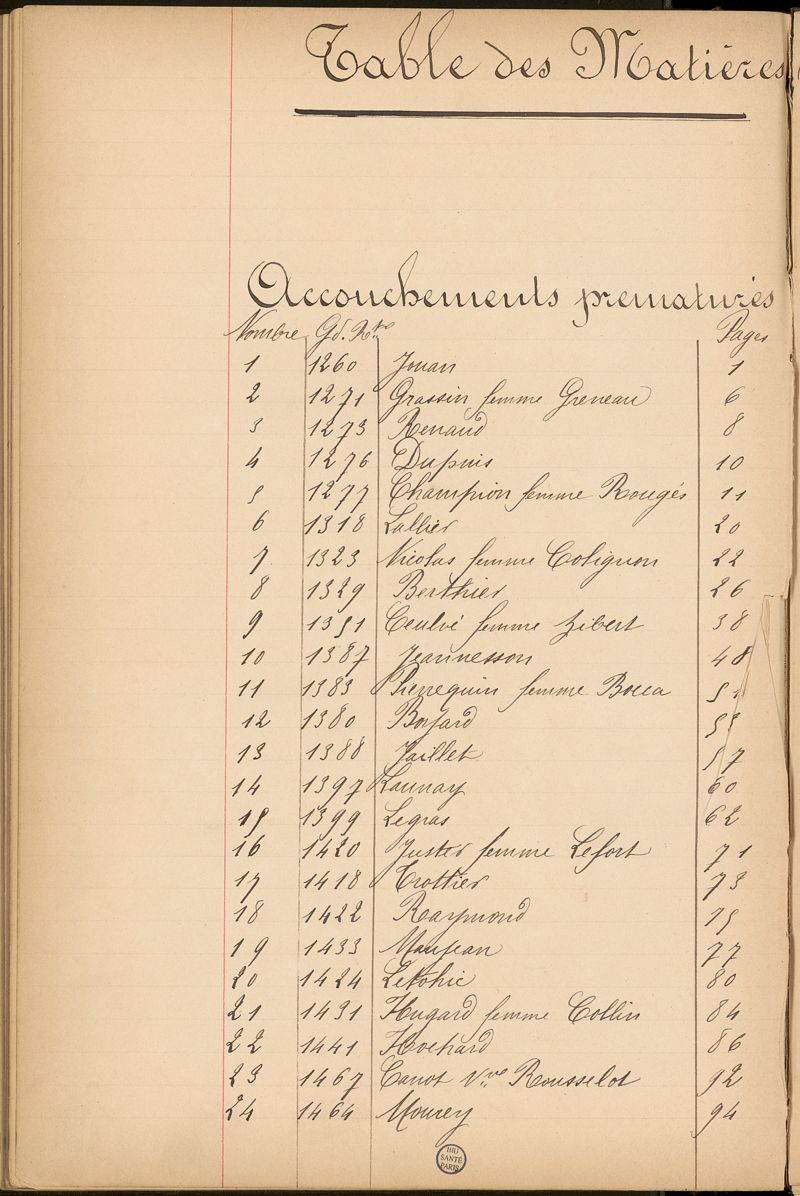 Table des Matières
Accouchements prématurés
Nombre Gd. Rtre Pages
1 1260 Jouan 1
2 1271 Grassin femme Greneau 6
3 1273 Renaud 8
4 1276 Dupuis 10
5 1277 Champion femme Rougés 11
6 1318 Lallier 20
7 1323 Nicolas femme Colignon 22
8 1329 Berthier 26
9 1351 femme Gibert 38
10 1387 Jeannesson 48
11 1383 Pierrequin femme Bocca
12 1380 Boyard 55
13 1388 Jaillet 57
14 1397 Launay 60
15 1399 Legras 62
16 1420 Juster femme Lefort 71
17 1418 Trottier 73
18 1422 Raymond 75
19 1433 Maujean 77
20 1424 Letohic 80
21 1431 Hugard femme Collin 84
22 1441 Hochard 86
23 1467 Canot Vve Rousselot 92
24 1464 Mourey 94
BIU
SANTÉ
PARIS